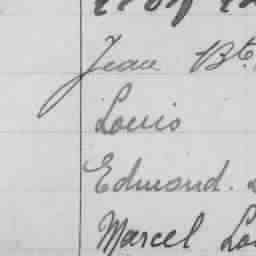 Jean Bte
Louis
Edmond.
Marcel